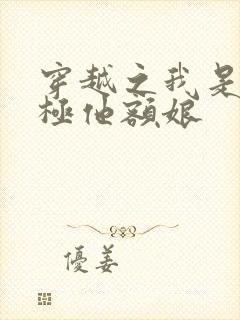 穿越之我是
極他額娘
優姜